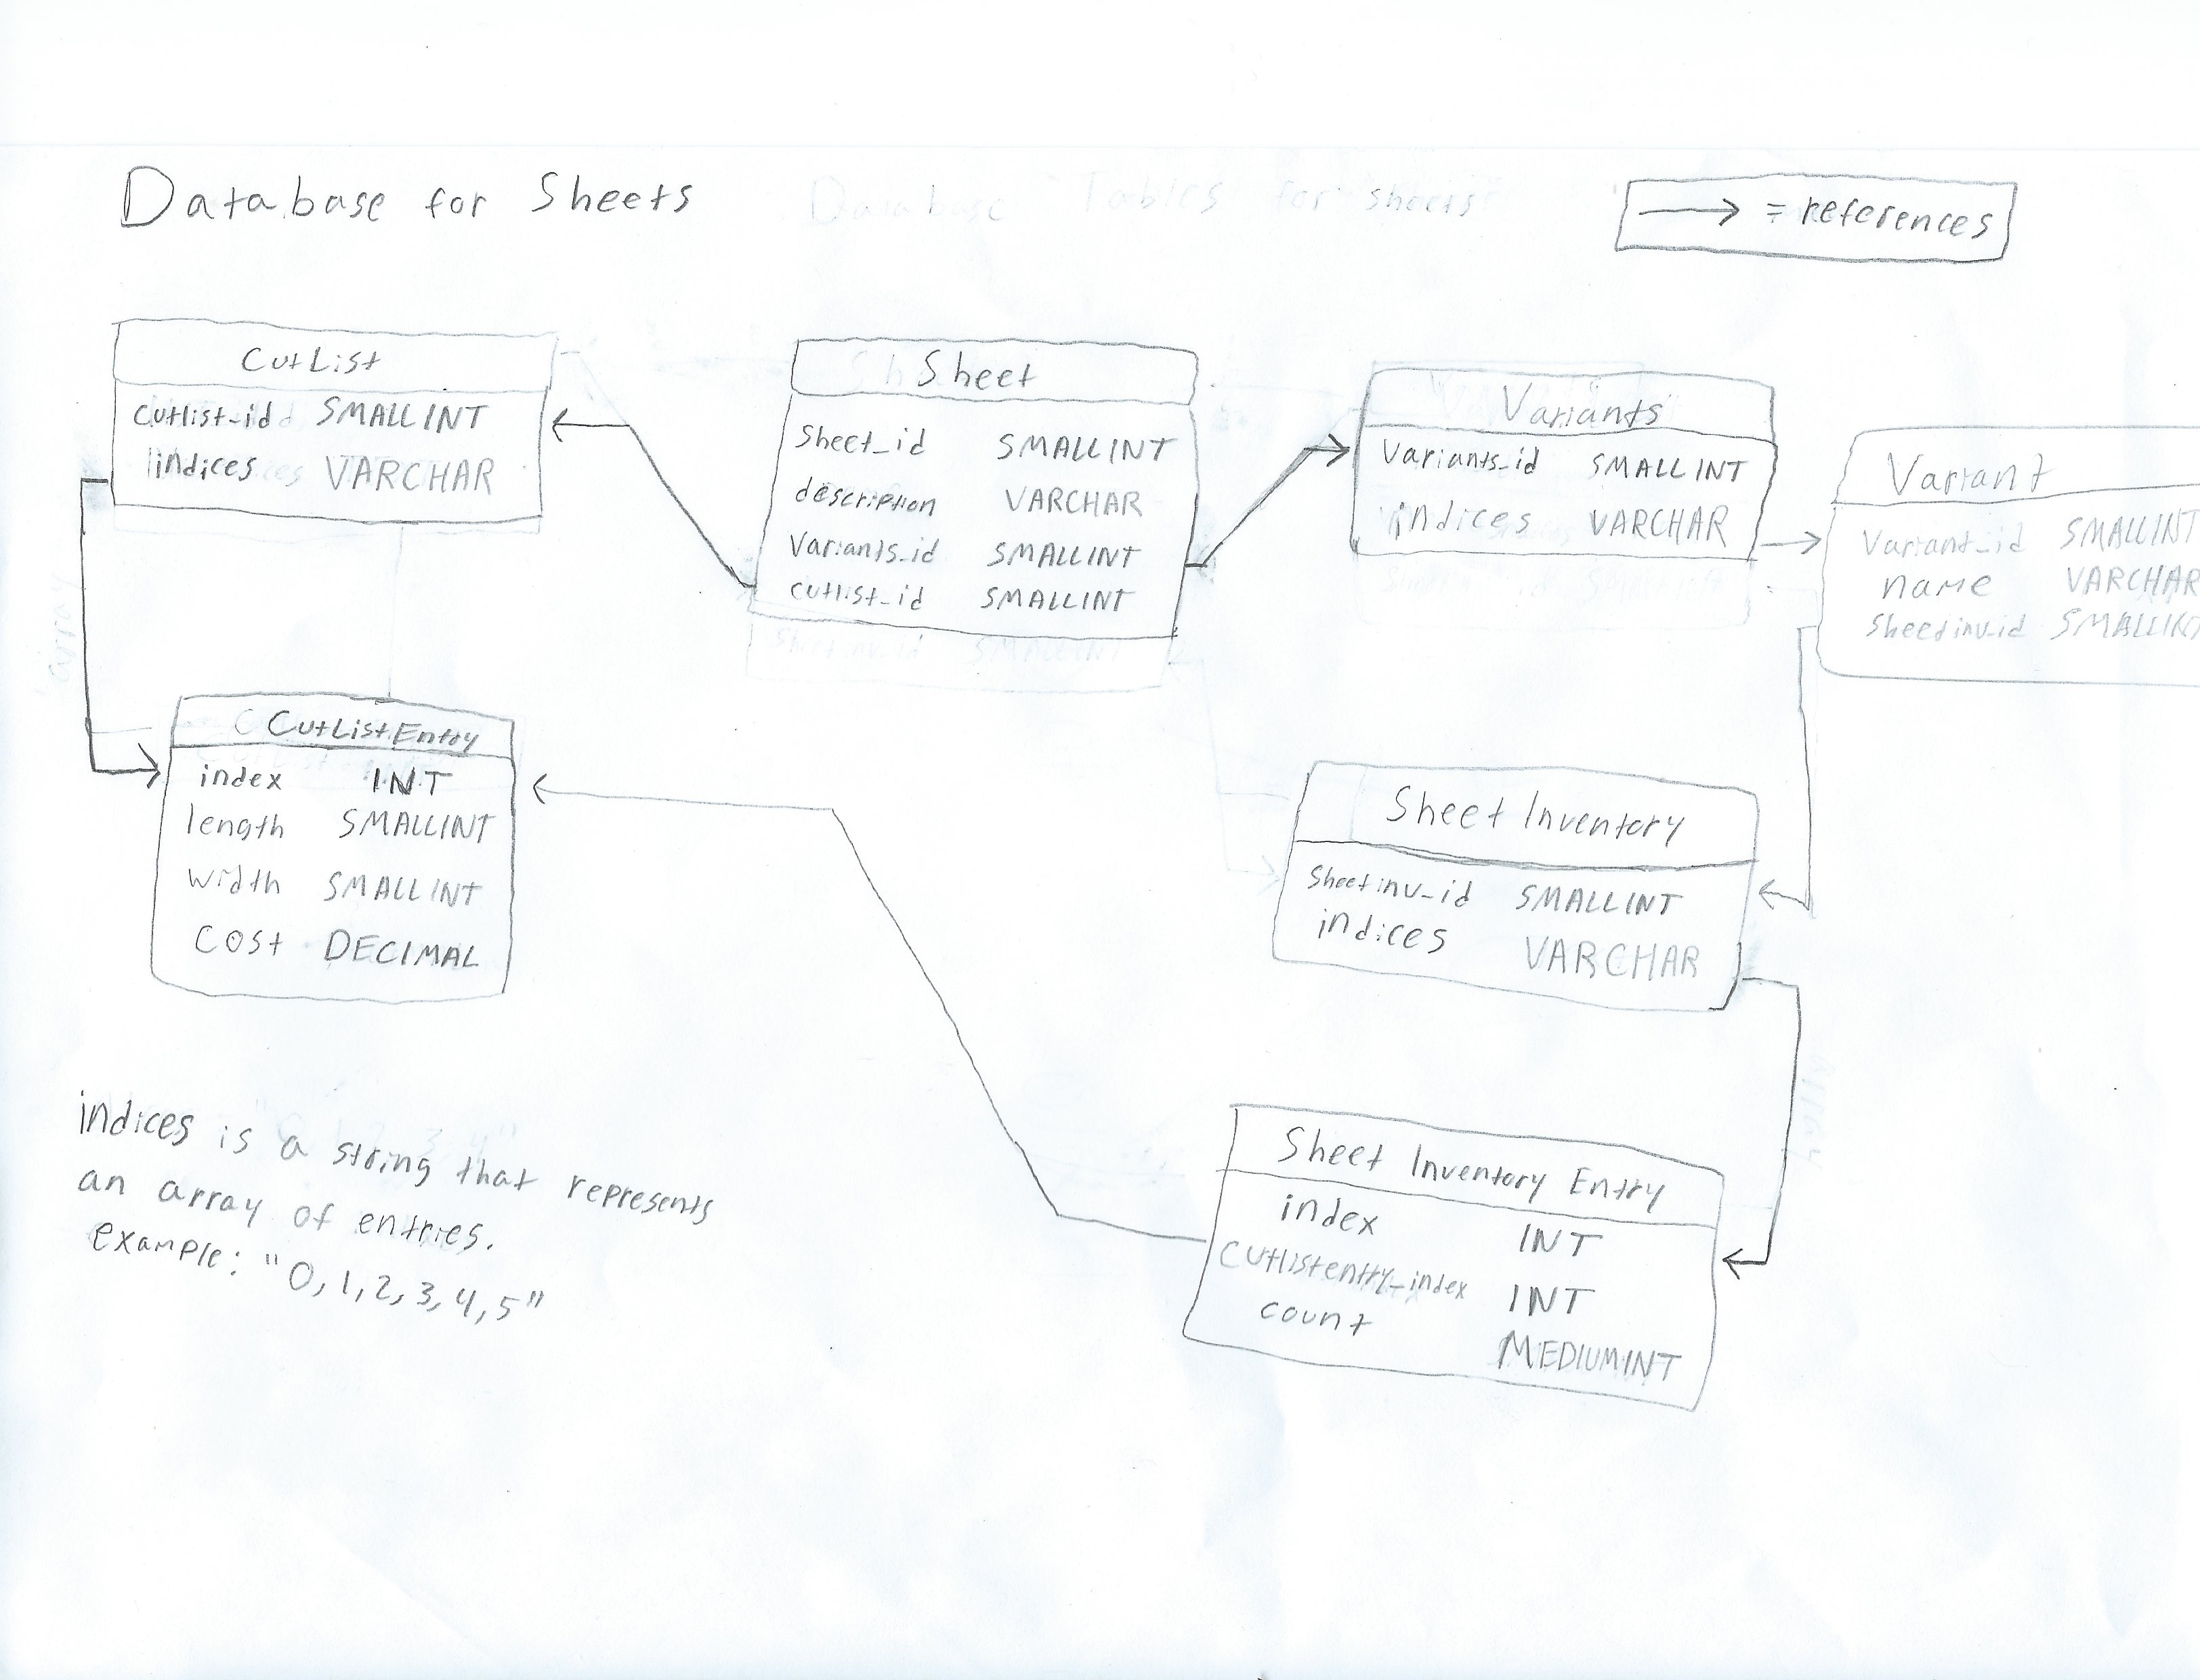 Database for Sheets
→ = references
CutList
cutlist_id SMALLINT
indices VARCHAR
Sheet
Sheet_id SMALLINT
description VARCHAR
Variants_id SMALLINT
cutlist_id SMALLINT
Variants
Variants_id SMALLINT
indices VARCHAR
Variant
Variant_id SMALLINT
name VARCHAR
Sheetinv_id SMALLINT
CutListEntry
index INT
length SMALLINT
width SMALLINT
Cost DECIMAL
Sheet Inventory
Sheetinv_id SMALLINT
indices VARCHAR
Sheet Inventory Entry
index INT
Cutlistentry_index INT
count MEDIUMINT
indices is a string that represents
an array of entries.
example: "0,1,2,3,4,5"